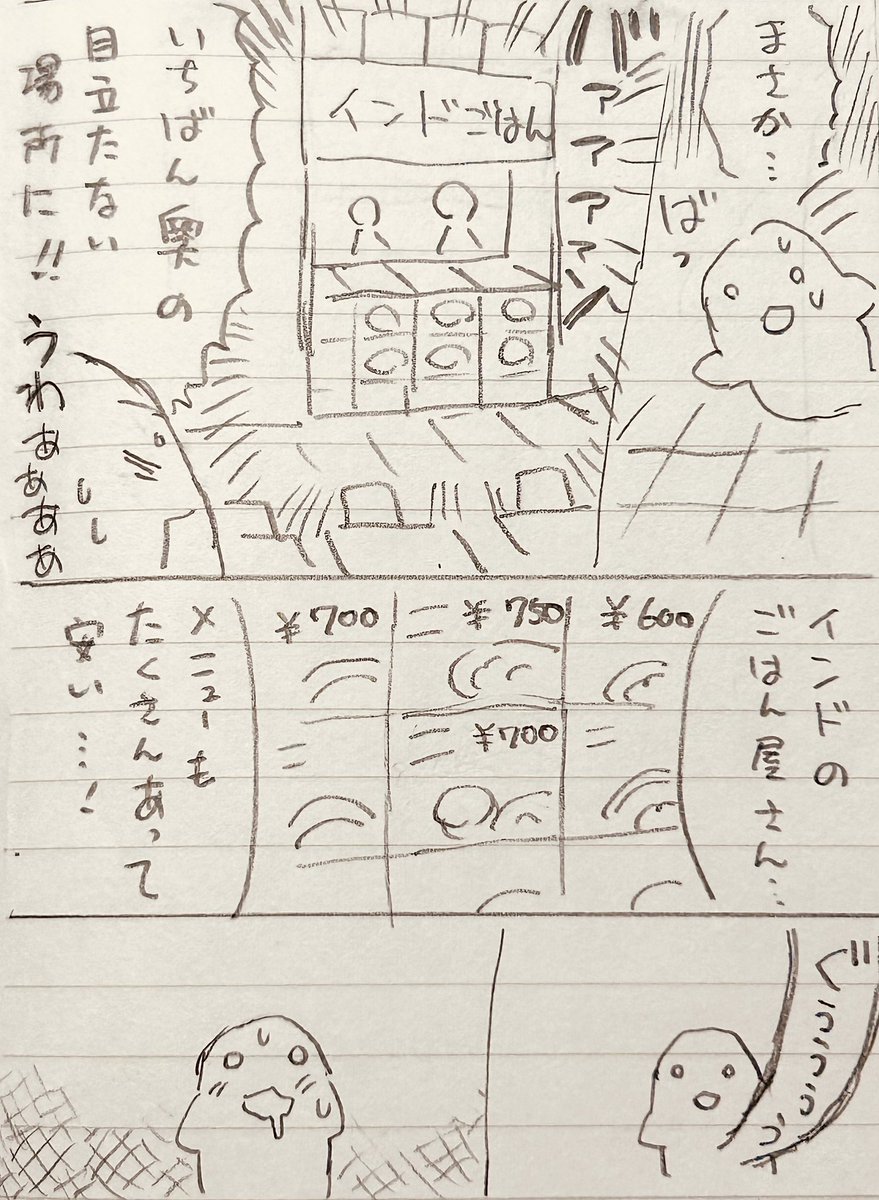 まさか…
ばっ
バアアアアン
インドごはん
いちばん奥の
目立たない
場所に!!
うわぁぁぁぁ
インドの
ごはん屋さん…
¥600
¥750
¥700
¥700
メニューも
たくさんあって
安い…!
ぐぅぅぅぅぅ